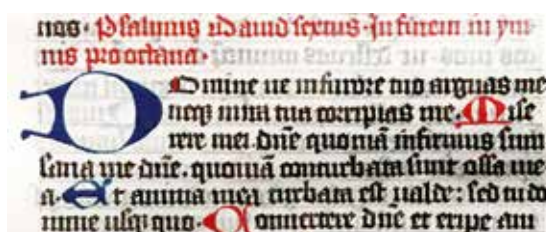 nos. Psalmus David sextus. In finem in ym
nis pro octava.
Domine ne in furore tuo arguas me
neq; in ira tua corripias me. Mise
rere mei dñe quoniã infirmus sum
sana me dñe. quoniã conturbata sunt ossa me
a. Et anima mea turbata est valde: sed tu do
mine usq; quo. Convertere dñe et eripe ani